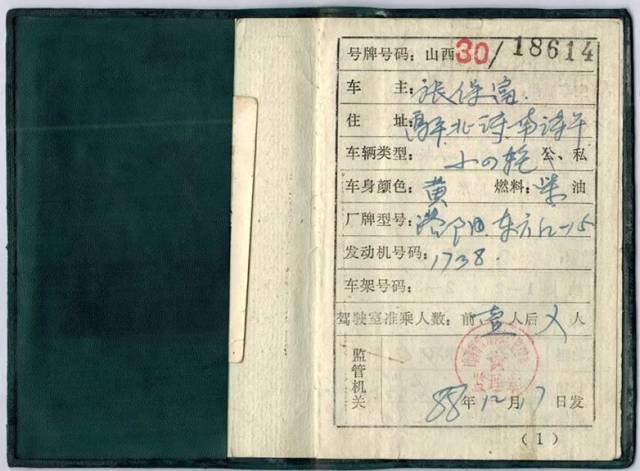 号牌号码：山西30/18614
车 主：张保富
住 址：高平北诗南诗午
车辆类型：小四轮 公、私
车身颜色：黄 燃料：柴油
厂牌型号：洛阳.东方红-15
发动机号码：1738.
车架号码：
驾驶室准乘人数：前壹人后 人
监管机关
监理
88年12月17日发
(1)